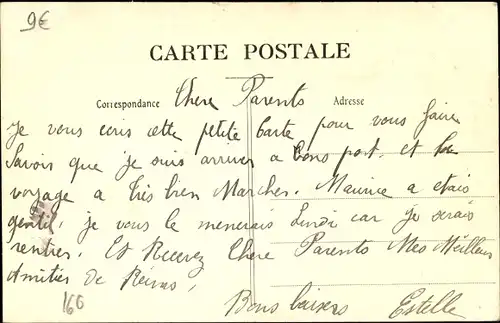 9€
CARTE POSTALE
Correspondance Adresse
Chere Parents
Je vous ecris cette petite Carte pour vous faire
savoir que je suis arriver a bons port. et le
voyage a très bien Marcher. Maurice a etais
gentil, je vous le menerais Lundi car je serais
rentrer. Et Recevez Chere Parents Mes Meilleur
Amitiés de Reims,
Bons baisers Estelle
160